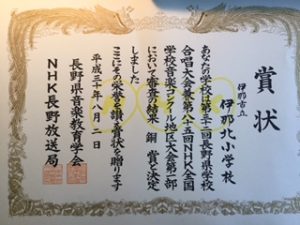 賞状
伊那市立
伊那北小学校
あなたの学校は第三十二回長野県学校
合唱大会兼第八十五回NHK全国
学校音楽コンクール地区大会第一部
において審査の結果 銅賞と決定
しました
ここにその栄誉を讃え賞状を贈ります
平成三十年八月二日
長野県音楽教育学会
NHK長野放送局